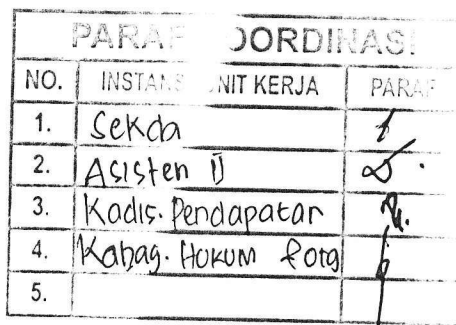 PARAF KOORDINASI
NO. INSTANSI/UNIT KERJA PARAF
1. Sekda
2. Asisten II
3. Kadis. Pendapatan
4. Kabag. Hukum
5.